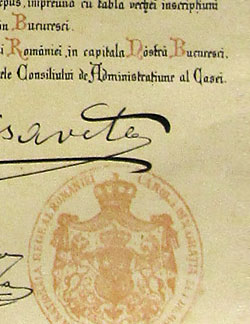 epus, împreună cu tabla vechei inscripțiuni
in București.
i României, in capitala Nóstră București.
ele Consiliului de Administrațiune al Casei.
saveta
ROMANIEI CAROL I